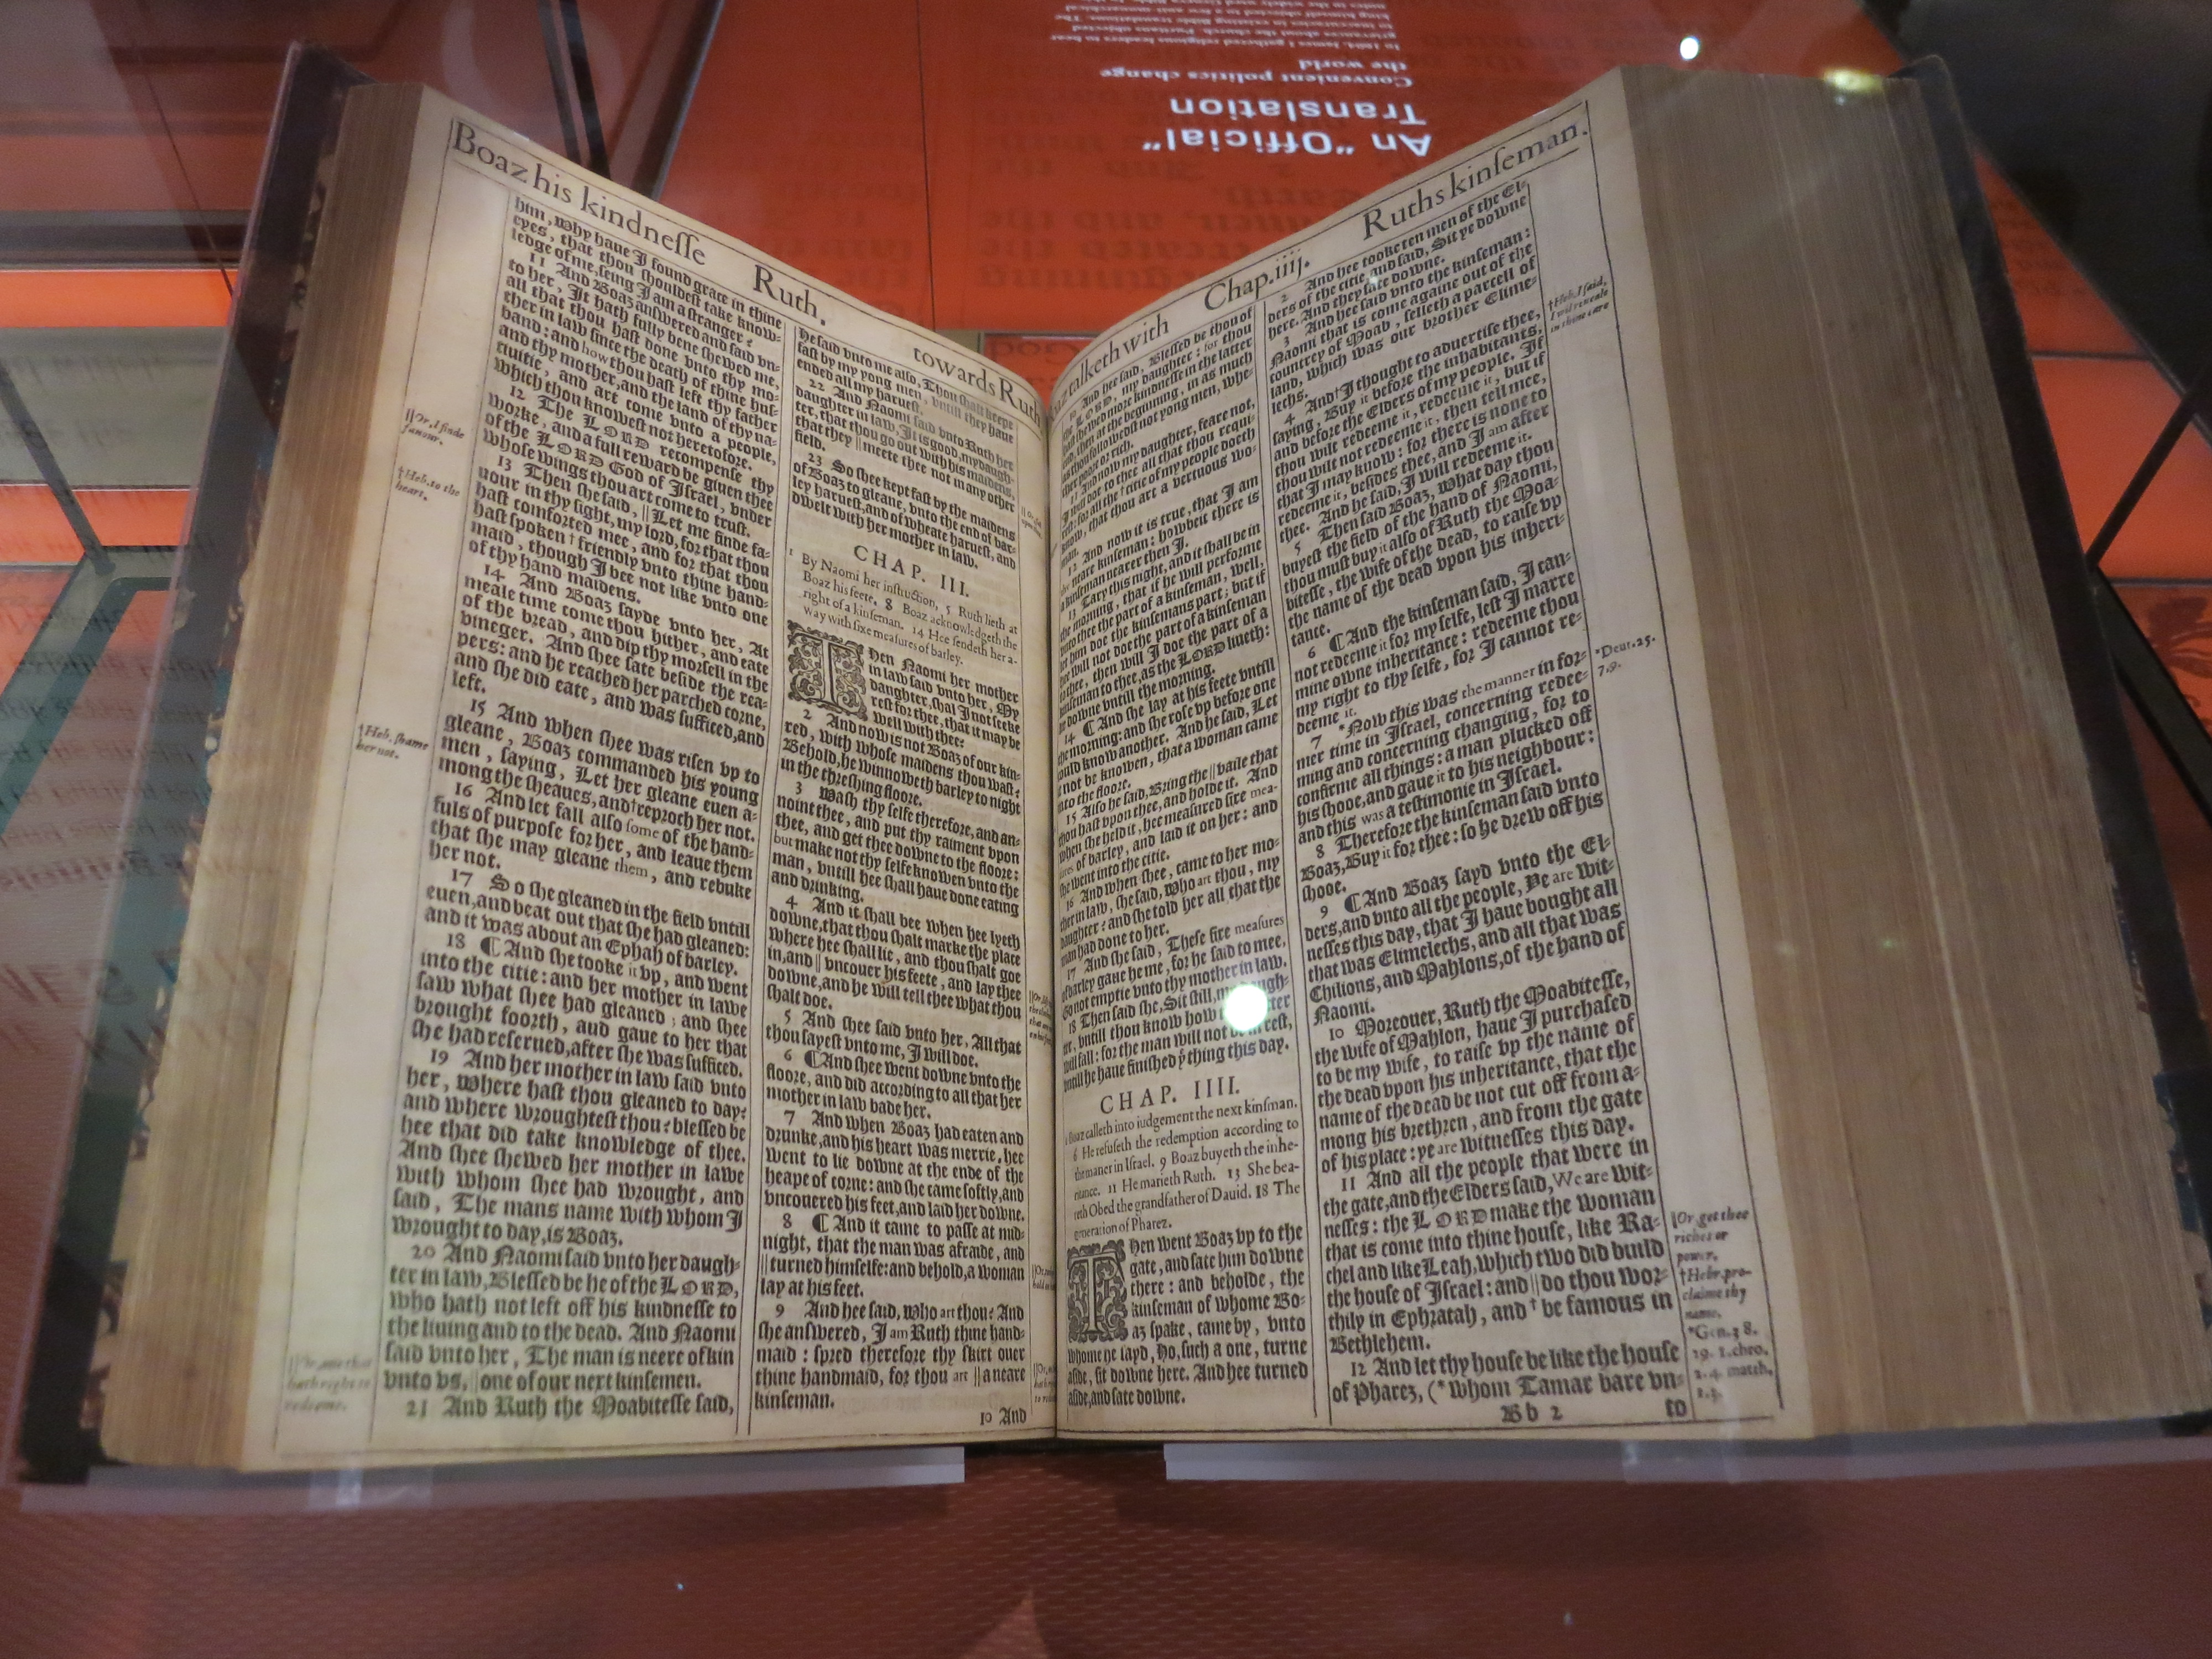 An "Official"
Translation
Convenient politics change
the world
In 1604, James I gathered religious leaders to hear
grievances about the church. Puritans objected
to inaccuracies in existing Bible translations. The
king himself objected to a few anti-monarchical
notes in the widely used Geneva Bible.
Boaz his kindneſſe Ruth. towards Ruth
him, Why haue I found grace in thine
eyes, that thou ſhouldeſt take know-
ledge of me, ſeing I am a ſtranger?
11 And Boaz anſwered and ſaid vn-
to her, It hath fully bene ſhewed me,
all that thou haſt done vnto thy mo-
ther in law ſince the death of thine huſ-
band: and how thou haſt left thy father
and thy mother, and the land of thy na-
tiuitie, and art come vnto a people,
which thou knoweſt not heretofore.
12 The LORD recompenſe thy
worke, and a full reward be giuen thee
of the LORD God of Iſrael, vnder
whoſe wings thou art come to truſt.
13 Then ſhe ſaid, || Let me finde fa-
uour in thy ſight, my lord, for that thou
haſt comforted mee, and for that thou
haſt ſpoken † friendly vnto thine hand-
maid, though I bee not like vnto one
of thy hand maidens.
14 And Boaz ſayde vnto her, At
meale time come thou hither, and eate
of the bread, and dip thy morſell in the
vineger. And ſhee ſate beſide the rea-
pers: and he reached her parched corne,
and ſhe did eate, and was ſufficed, and
left.
15 And when ſhee was riſen vp to
gleane, Boaz commanded his young
men, ſaying, Let her gleane euen a-
mong the ſheaues, and † reproch her not.
16 And let fall alſo ſome of the hand-
fuls of purpoſe for her, and leaue them
that ſhe may gleane them, and rebuke
her not.
17 So ſhe gleaned in the field vntill
euen, and beat out that ſhe had gleaned:
and it was about an Ephah of barley.
18 ¶ And ſhe tooke it vp, and went
into the citie: and her mother in lawe
ſaw what ſhee had gleaned; and ſhee
brought foorth, aud gaue to her that
ſhe had reſerued, after ſhe was ſufficed.
19 And her mother in law ſaid vnto
her, Where haſt thou gleaned to day?
and where wroughteſt thou? bleſſed be
hee that did take knowledge of thee.
And ſhee ſhewed her mother in lawe
with whom ſhee had wrought, and
ſaid, The mans name with whom I
wrought to day, is Boaz.
20 And Naomi ſaid vnto her daugh-
ter in law, Bleſſed be he of the LORD,
who hath not left off his kindneſſe to
the liuing and to the dead. And Naomi
ſaid vnto her, The man is neere of kin
vnto vs, || one of our next kinſemen.
21 And Ruth the Moabiteſſe ſaid,
|| Or, I finde
fauour.
† Heb. to the
heart.
† Heb. ſhame
her not.
|| Or, one that
hath right to
redeeme.
He ſaid vnto me alſo, Thou ſhalt keepe
faſt by my yong men, vntill they haue
ended all my harueſt.
22 And Naomi ſaid vnto Ruth her
daughter in law, It is good, my daugh-
ter, that thou go out with his maidens,
that they || meete thee not in any other
field.
23 So ſhee kept faſt by the maidens
of Boaz to gleane, vnto the end of bar-
ley harueſt, and of wheate harueſt, and
dwelt with her mother in law.
CHAP. III.
1 By Naomi her inſtruction, 5 Ruth lieth at
Boaz his feete. 8 Boaz acknowledgeth the
right of a kinſeman. 14 Hee ſendeth her a-
way with ſixe meaſures of barley.
Then Naomi her mother
in law ſaid vnto her, My
daughter, ſhal I not ſeeke
reſt for thee, that it may be
well with thee?
2 And now is not Boaz of our kin-
red, with whoſe maidens thou waſt?
Behold, he winnoweth barley to night
in the threſhing floore.
3 Waſh thy ſelfe therefore, and an-
noint thee, and put thy raiment vpon
thee, and get thee downe to the floore:
but make not thy ſelfe knowen vnto the
man, vntill hee ſhall haue done eating
and drinking.
4 And it ſhall bee when hee lyeth
downe, that thou ſhalt marke the place
where hee ſhall lie, and thou ſhalt goe
in, and || vncouer his feete, and lay thee
downe, and he will tell thee what thou
ſhalt doe.
5 And ſhee ſaid vnto her, All that
thou ſayeſt vnto me, I will doe.
6 ¶ And ſhee went downe vnto the
floore, and did according to all that her
mother in law bade her.
7 And when Boaz had eaten and
drunke, and his heart was merrie, hee
went to lie downe at the ende of the
heape of corne: and ſhe came ſoftly, and
vncouered his feet, and laid her downe.
8 ¶ And it came to paſſe at mid-
night, that the man was afraide, and
|| turned himſelfe: and behold, a woman
lay at his feet.
9 And hee ſaid, Who art thou? And
ſhe anſwered, I am Ruth thine hand-
maid: ſpred therefore thy ſkirt ouer
thine handmaid, for thou art || a neare
kinſeman.
10 And
talketh with Chap.iiij. Ruths kinſeman.
10 And hee ſaid, Bleſſed be thou of
the LORD, my daughter: for thou
haſt ſhewed more kindneſſe in the latter
end, then at the beginning, in as much
as thou followedſt not yong men, whe-
ther poore or rich.
11 And now my daughter, feare not,
I will doe to thee all that thou requi-
reſt: for all the † citie of my people doeth
know, that thou art a vertuous wo-
man.
12 And now it is true, that I am
thy neare kinſeman: howbeit there is
a kinſeman nearer then I.
13 Tary this night, and it ſhall be in
the morning, that if he will performe
vnto thee the part of a kinſeman, well,
let him doe the kinſemans part; but if
hee will not doe the part of a kinſeman
to thee, then will I doe the part of a
kinſeman to thee, as the LORD liueth:
ly downe vntill the morning.
14 ¶ And ſhe lay at his feete vntill
the morning: and ſhe roſe vp before one
could know another. And he ſaid, Let
it not be knowen, that a woman came
into the floore.
15 Alſo he ſaid, Bring the || vaile that
thou haſt vpon thee, and holde it. And
when ſhe held it, hee meaſured ſixe mea-
ſures of barley, and laid it on her: and
ſhe went into the citie.
16 And when ſhee, came to her mo-
ther in law, ſhe ſaid, Who art thou, my
daughter? and ſhe told her all that the
man had done to her.
17 And ſhe ſaid, Theſe ſixe meaſures
of barley gaue he me, for he ſaid to mee,
Go not emptie vnto thy mother in law.
18 Then ſaid ſhe, Sit ſtill, my daugh-
ter, vntill thou know how matter
will fall: for the man will not be in reſt,
vntill he haue finiſhed yͤ thing this day.
CHAP. IIII.
1 Boaz calleth into iudgement the next kinſman.
6 He refuſeth the redemption according to
the maner in Iſrael. 9 Boaz buyeth the inhe-
ritance. 11 He marieth Ruth. 13 She bea-
reth Obed the grandfather of Dauid. 18 The
generation of Pharez.
Then went Boaz vp to the
gate, and ſate him downe
there: and beholde, the
kinſeman of whome Bo-
az ſpake, came by, vnto
whome he ſayd, Ho, ſuch a one, turne
aſide, ſit downe here. And hee turned
aſide, and ſate downe.
2 And hee tooke ten men of the El-
ders of the citie, and ſaid, Sit ye downe
here. And they ſate downe.
3 And hee ſaid vnto the kinſeman:
Naomi that is come againe out of the
countrey of Moab, ſelleth a parcell of
land, which was our brother Elime-
lechs.
4 And † I thought to aduertiſe thee,
ſaying, Buy it before the inhabitants,
and before the Elders of my people. If
thou wilt redeeme it, redeeme it, but if
thou wilt not redeeme it, then tell mee,
that I may know: for there is none to
redeeme it, beſides thee, and I am after
thee. And he ſaid, I will redeeme it.
5 Then ſaid Boaz, What day thou
buyeſt the field of the hand of Naomi,
thou muſt buy it alſo of Ruth the Moa-
biteſſe, the wife of the dead, to raiſe vp
the name of the dead vpon his inheri-
tance.
6 ¶ And the kinſeman ſaid, I can-
not redeeme it for my ſelfe, leſt I marre
mine owne inheritance: redeeme thou
my right to thy ſelfe, for I cannot re-
deeme it.
7 *Now this was the manner in for-
mer time in Iſrael, concerning redee-
ming and concerning changing, for to
confirme all things: a man plucked off
his ſhooe, and gaue it to his neighbour:
and this was a teſtimonie in Iſrael.
8 Therefore the kinſeman ſaid vnto
Boaz, Buy it for thee: ſo he drew off his
ſhooe.
9 ¶ And Boaz ſayd vnto the El-
ders, and vnto all the people, Ye are wit-
neſſes this day, that I haue bought all
that was Elimelechs, and all that was
Chilions, and Mahlons, of the hand of
Naomi.
10 Moreouer, Ruth the Moabiteſſe,
the wife of Mahlon, haue I purchaſed
to be my wife, to raiſe vp the name of
the dead vpon his inheritance, that the
name of the dead be not cut off from a-
mong his brethren, and from the gate
of his place: ye are witneſſes this day.
11 And all the people that were in
the gate, and the Elders ſaid, We are wit-
neſſes: the LORD make the woman
that is come into thine houſe, like Ra-
chel and like Leah, which two did build
the houſe of Iſrael: and || do thou wor-
thily in Ephratah, and † be famous in
Bethlehem.
12 And let thy houſe be like the houſe
of Pharez, (*whom Tamar bare vn-
Bb 2 to
† Heb. I ſaid,
I will reueale
in thine eare
*Deut. 25.
7,9.
|| Or, get thee
riches or
power.
† Hebr. pro-
claime thy
name.
*Gen. 38.
29. 1. chro.
2.4. matth.
1.3.